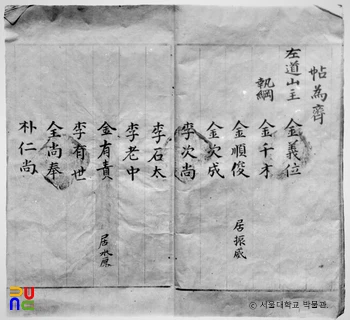 帖爲齊
左道山主 金義位
執綱 金千才
金順俊 居振威
金次成
李次尚
李石太
李老中
金有責 居水原
李有世
金尚奉
朴仁尚
ⓒ 서울대학교 박물관